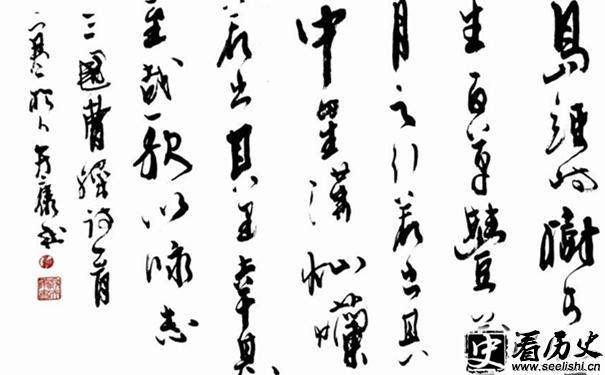 島竦峙樹木
生百草豐茂
月之行若出其
中星漢灿爛
若出其里幸甚
至哉歌以咏志
三國曹操詩一首
史
看历史
www.seelishi.cn